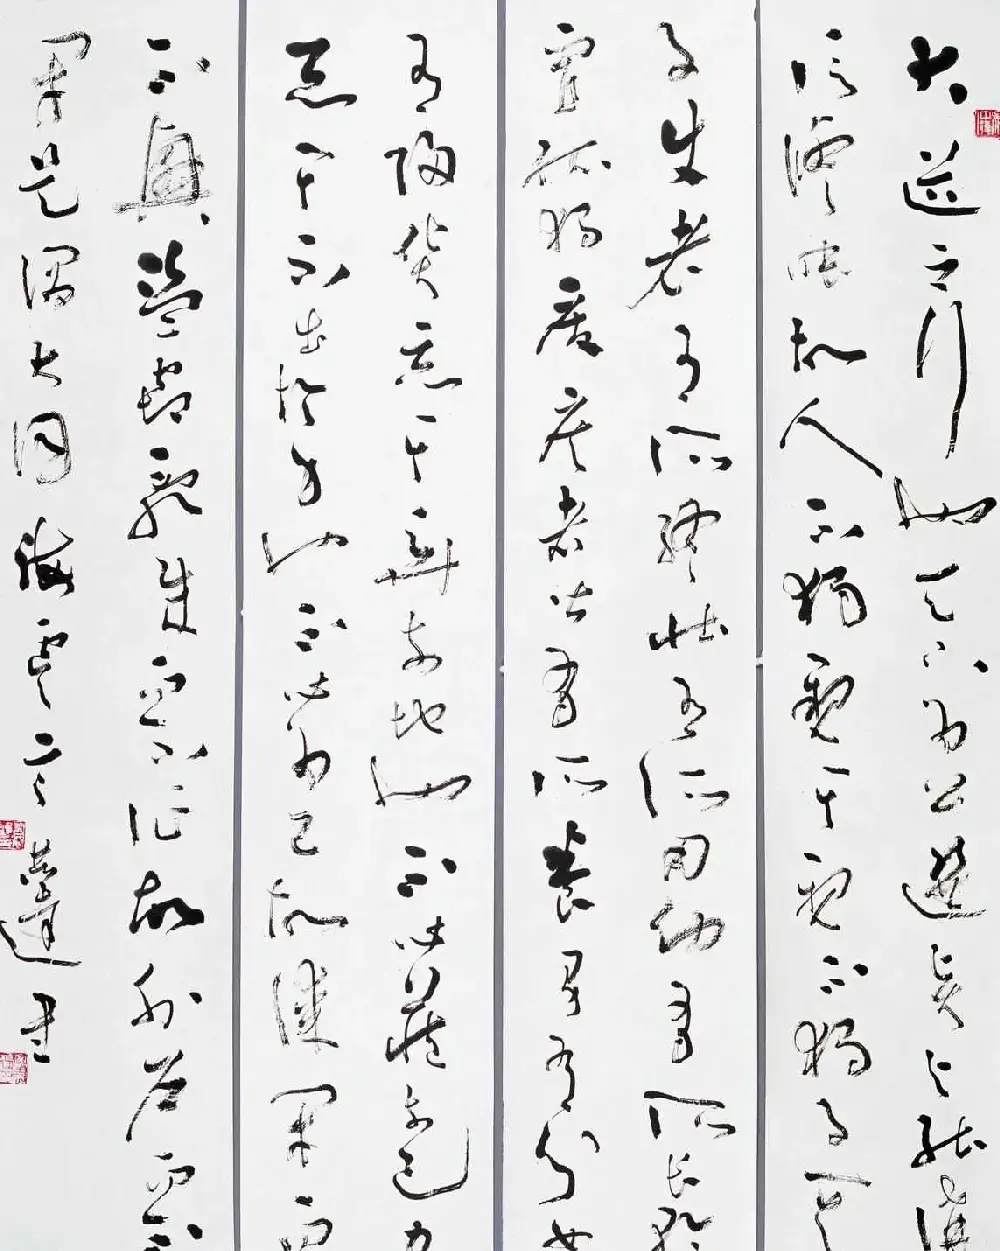 大道之行也天下為公選賢與能講
信修睦故人不獨親其親不獨子其
子使老有所終壯有所用幼有所長矜
寡孤獨廢疾者皆有所養男有分女
有歸貨惡其棄於地也不必藏於己力
惡其不出於身也不必為己故謀閉而
不興盜竊亂賊而不作故外戶而不
閉是謂大同 書